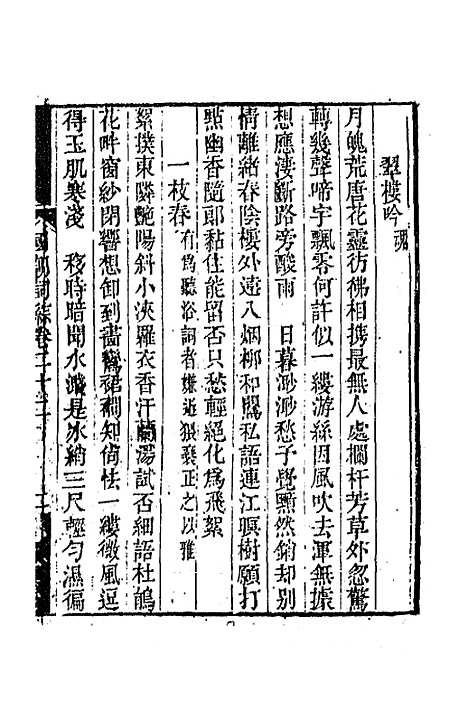 翠樓吟 魂
月魄荒唐花靈彷彿相携最無人處闌杆芳草外忽驚
轉幾聲啼宇飄零何許似一縷游絲因風吹去渾無據
想應淒斷路旁酸雨　日暮渺渺愁予覺黯然銷却別
情離緒春陰樓外遠入烟柳和鶯私語連江暝樹願打
點幽香隨郞黏住能留否只愁輕絕化爲飛絮
一枝春 有爲聽浴詞者嫌近猥褻正之以雅
絮撲東隣艷陽斜小浹羅衣香汗蘭湯試否細語杜鵑
花畔窗紗閉響想卸到畵鸞裙襉知倚怯一縷微風逗
得玉肌寒淺　移時暗聞水濺是冰綃三尺輕勻濕徧
國朝詞綜卷二十二